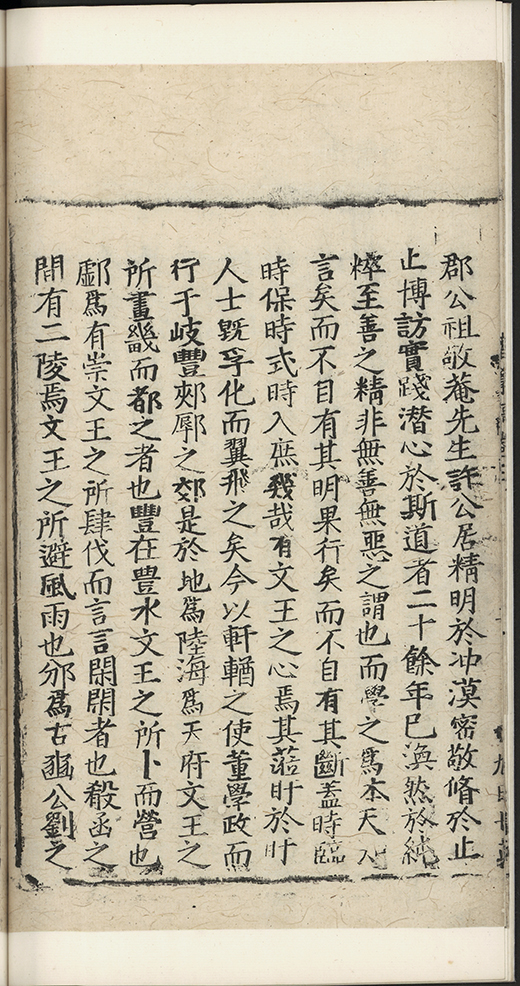 郡公祖敬菴先生許公居精明於冲漠密敬脩於止
止博訪實踐潛心於斯道者二十餘年已渙然於純
粹至善之精非無善無惡之謂也而學之爲本天
言矣而不自有其明果行矣而不自有其斷蓋時臨
時保時式時入庶幾哉有文王之心焉其蒞盱於盱
人士既孚化而翼飛之矣今以軒輶之使董學政而
行于岐豐郟鄏之郊是於地爲陸海爲天府文王之
所畫畿而都之者也豐在豐水文王之所卜而營也
鄠爲有崇文王之所肆伐而言言閑閑者也殽函之
間有二陵焉文王之所避風雨也邠爲古豳公劉之